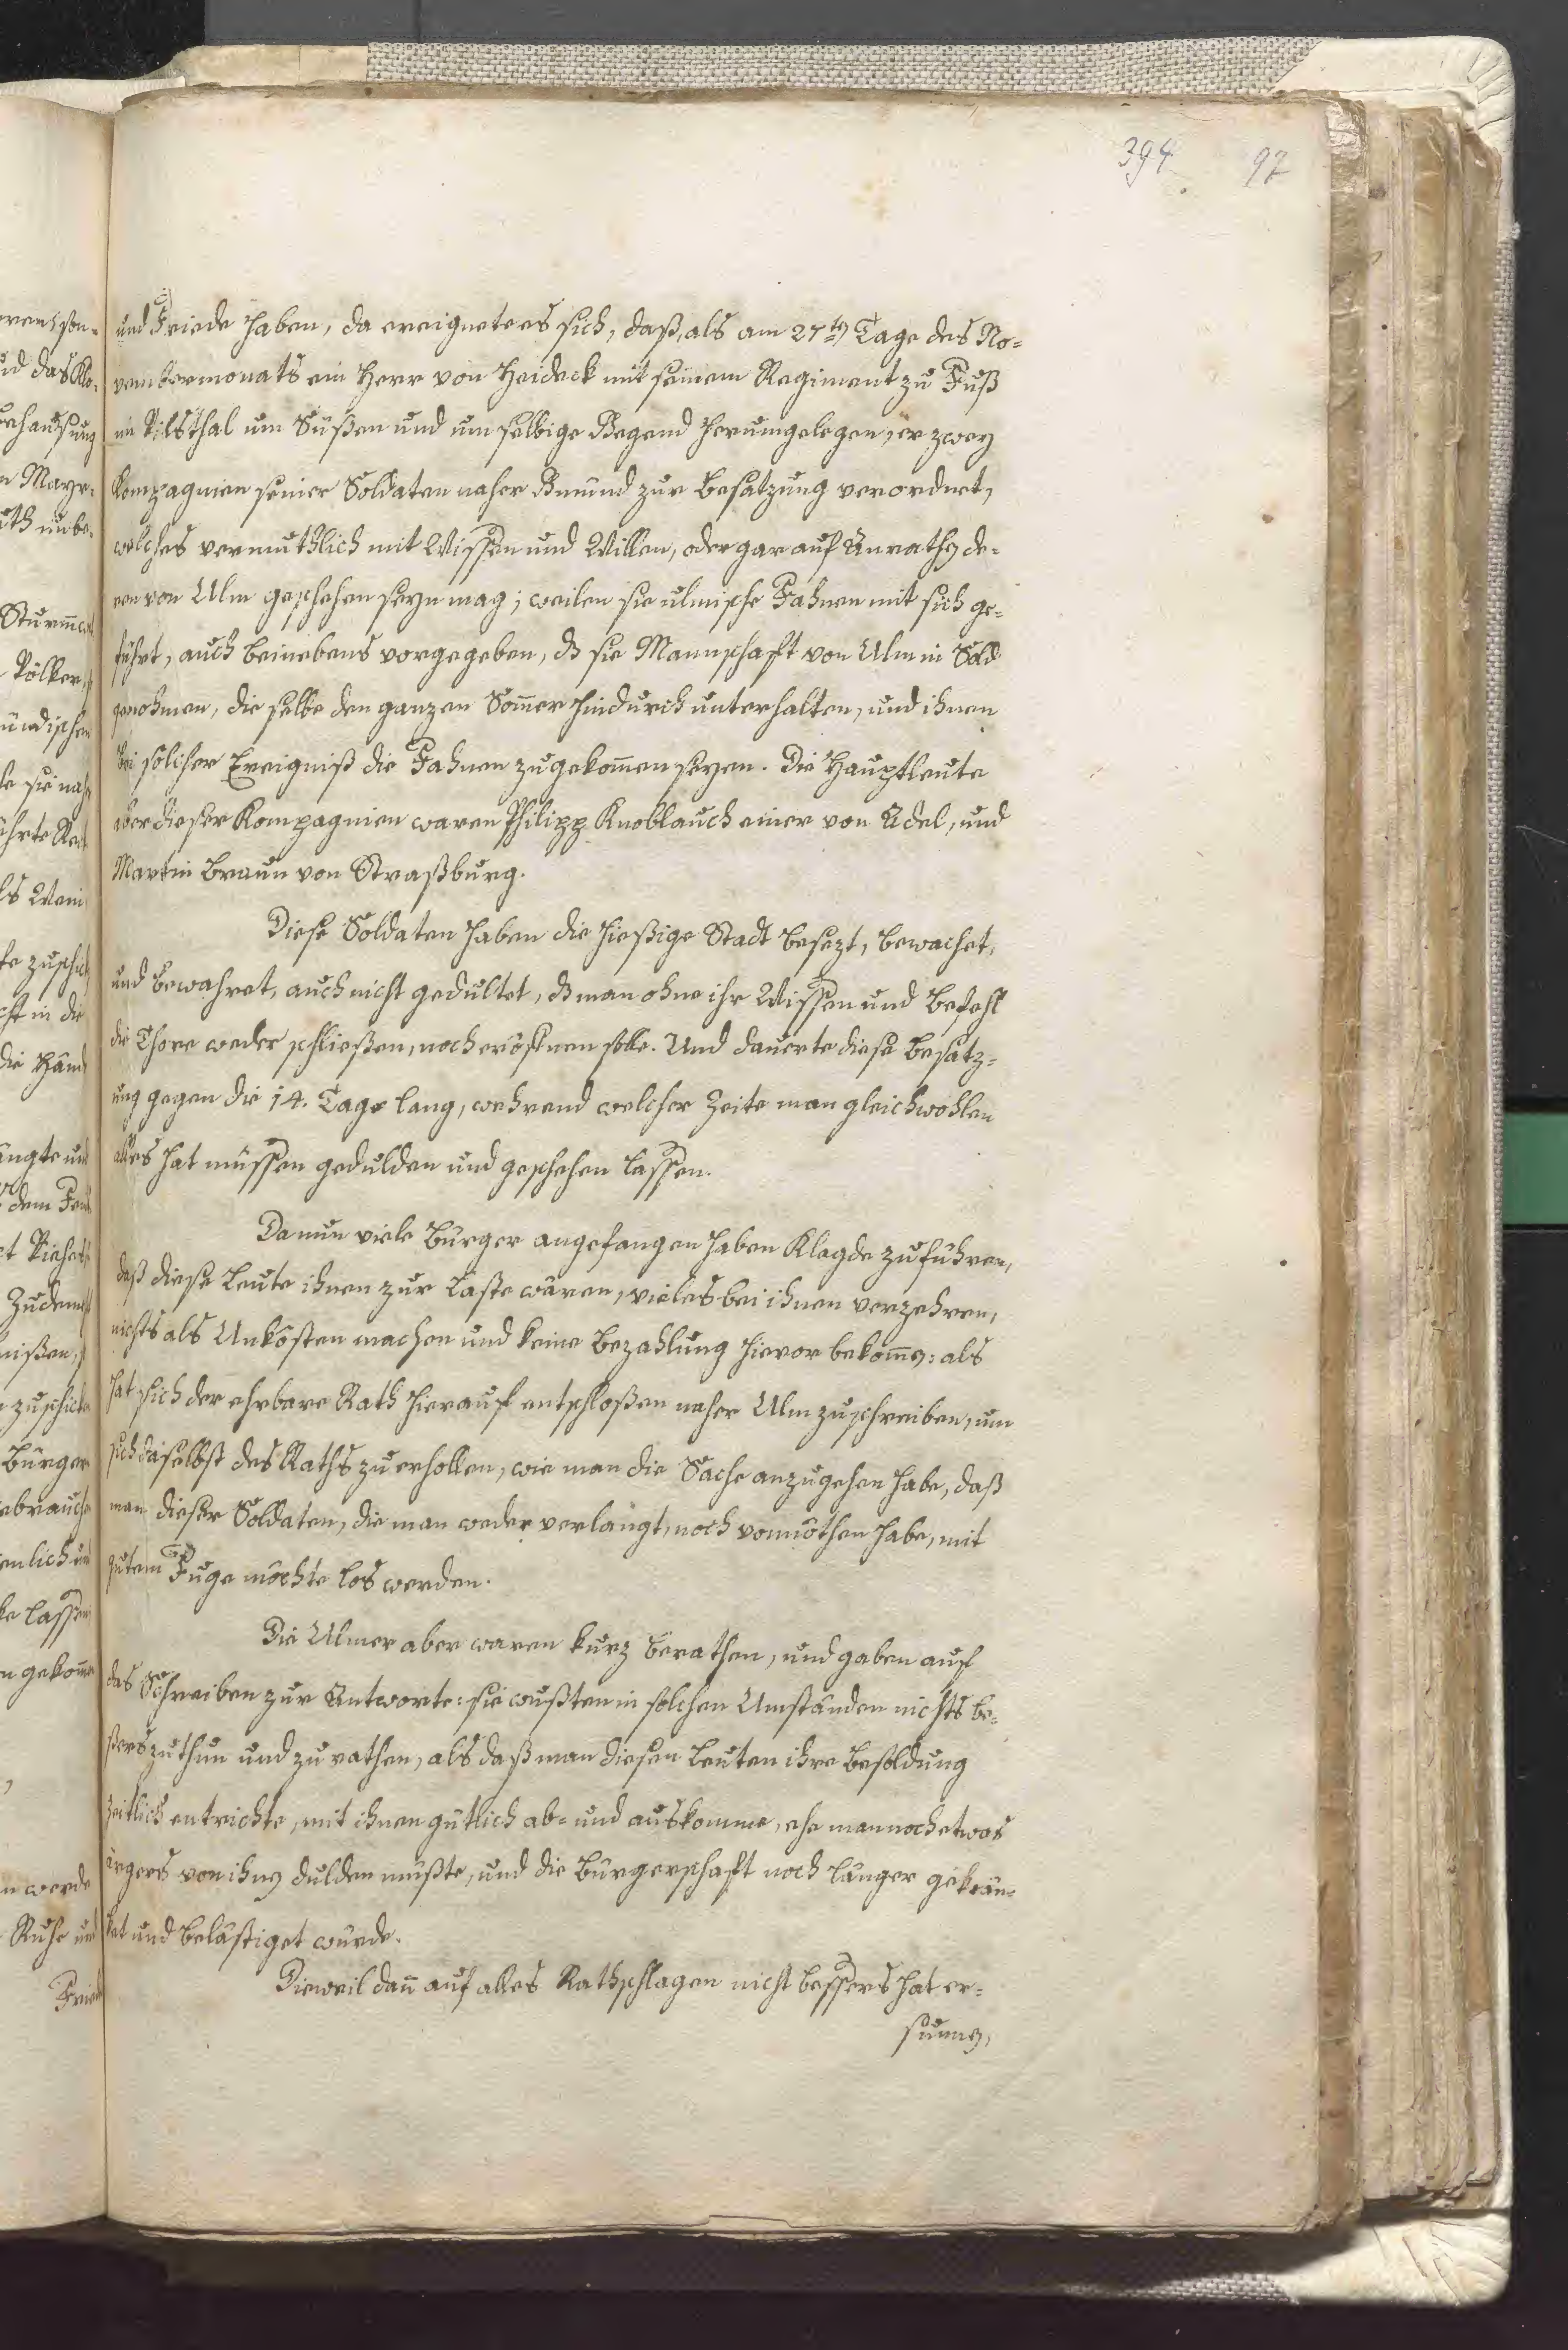 394 97
und Friede haben, da ereignete es sich, daß, als am 27ten Tage des No-
vembermonats ein Herr von Heideck mit seinem Regiment zu Fuß
im Vilsthal um Süßen und um selbige Gegend herumgelegen, er zwey
Kompagnien seiner Soldaten naher Gmünd zur Besatzung verordnet,
welches vermuthlich mit Wissen und Willen, oder gar auf Anrathen de-
ren von Ulm geschehen seyn mag; weilen sie ulmische Fahnen mit sich ge-
führt, auch beinebens vorgegeben, dß sie Mannschaft von Ulm in Sold
genohmen, die selbe den ganzen Som̄er hindurch unterhalten, und ihnen
bei solcher Ereigniß die Fahnen zugekom̄en seyen. Die Hauptleute
aber dieser Kompagnien waren Philipp Knoblauch einer von Adel, und
Martin Braun von Straßburg.
Diese Soldaten haben die hießige Stadt besezt, bewachet,
und bewahret, auch nicht gedultet, dß man ohne ihr Wissen und Befehl
die Thore weder schließen, noch eröfnen solle. Und dauerte diese Besatz-
ung gegen die 14. Tage lang, wehrend welcher Zeite man gleichwohlen
alles hat müssen gedulden und geschehen lassen.
Da nun viele Bürger angefangen haben Klagde zu führen,
daß diese Leute ihnen zur Laste wären, vieles bei ihnen verzehren,
nichts als Unkösten machen und keine Bezahlung hievor bekom̄en: als
hat sich der ehrbare Rath hierauf entschloßen naher Ulm zuschreiben, um
sich daselbst des Raths zu erhollen, wie man die Sache anzugehen habe, daß
man dieser Soldaten, die man weder verlangt, noch vonnöthen habe, mit
gutem Fuge möchte los werden.
Die Ulmer aber waren kurz berathen, und gaben auf
das Schreiben zur Antworte: sie wußten in solchen Umständen nichts be-
ßers zu thun und zu rathen, als daß man diesen Leuten ihre Besoldung
zeitlich entrichte, mit ihnen gütlich ab- und auskomme, ehe man noch etwas
ärgers von ihnen dulden müßte, und die Bürgerschaft noch länger gekrän-
ket und belästiget würde.
Dieweil dan̄ auf alles Rathschlagen nicht bessers hat er-
sunnen,